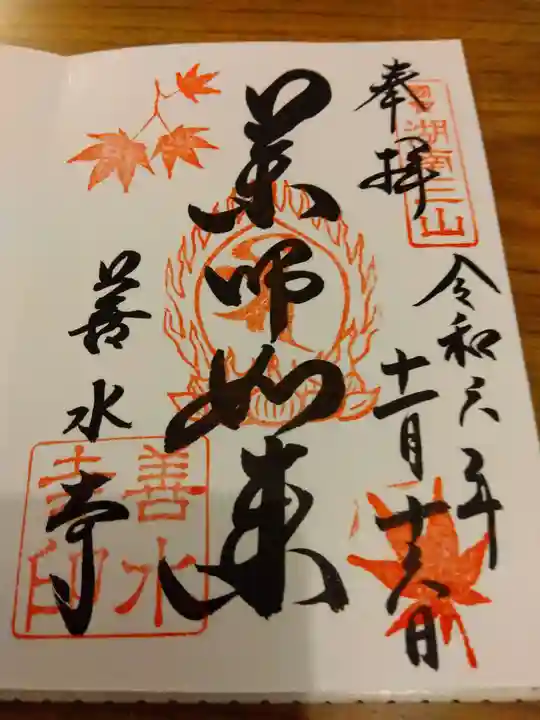 奉拝
湖南三山
令和六年
十一月十六日
薬師如来
善水寺
善水寺印